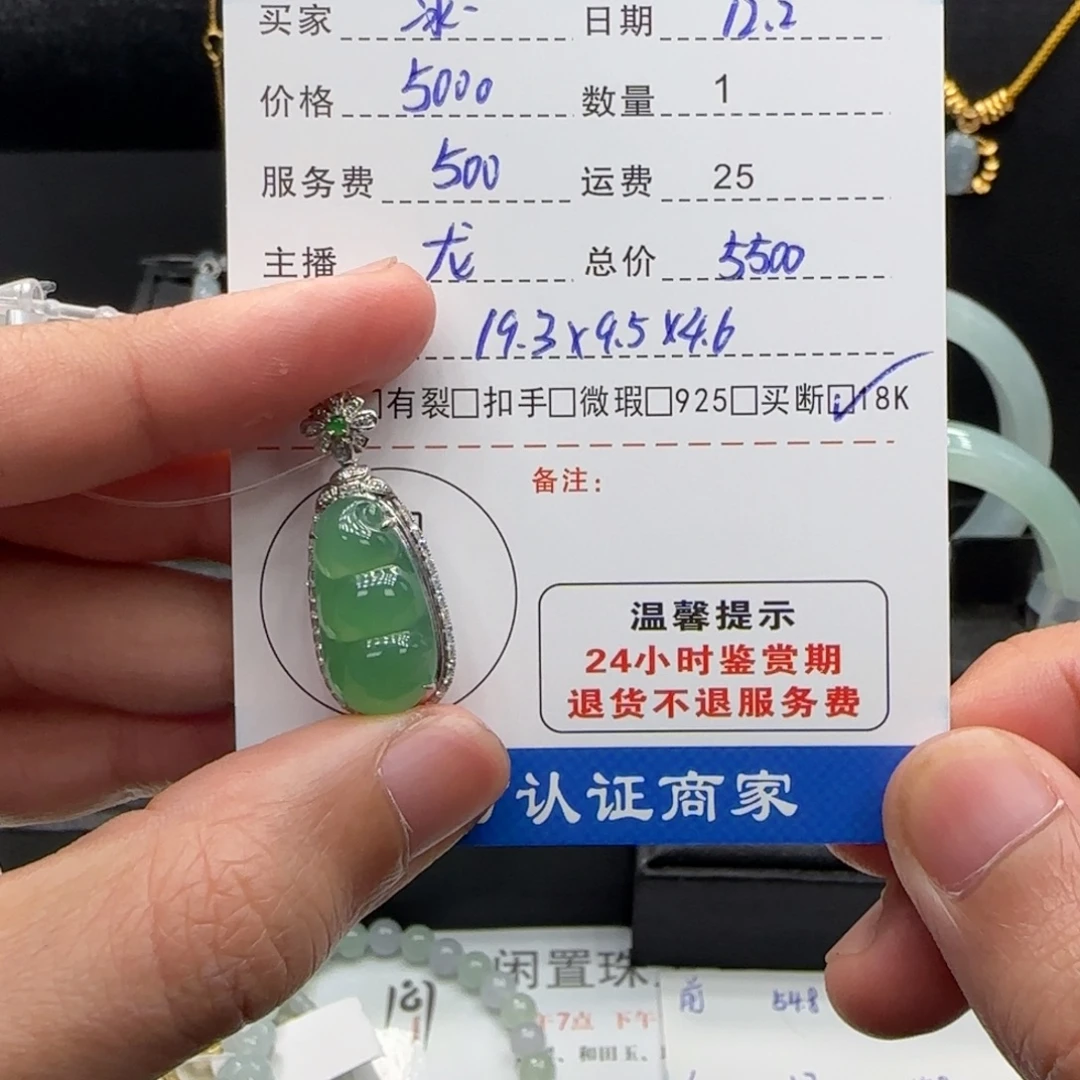 买家 冰 日期 12.2
价格 5000 数量 1
服务费 500 运费 25
主播 龙 总价 5500
19.3x9.5x4.6
有裂□扣手□微瑕□925□买断☑18K
备注：
温馨提示
24小时鉴赏期
退货不退服务费
认证商家
闲置珠
前 548
午7点 下午
、和田玉、